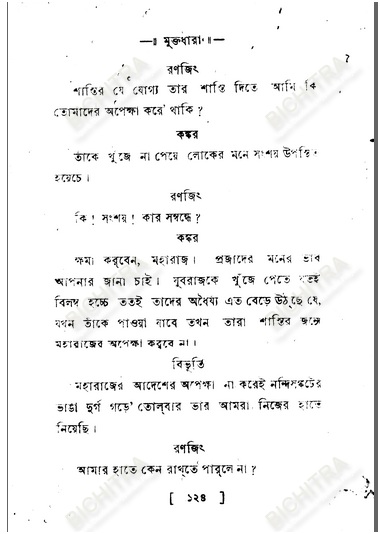 —॥ মুক্তধারা ॥—
রণজিৎ
শাস্তির যে যোগ্য তার শাস্তি দিতে আমি কি
তোমাদের অপেক্ষা করে' থাকি ?
কঙ্কর
তাঁকে খুঁজে না পেয়ে লোকের মনে সংশয় উপস্থিত
হয়েচে।
রণজিৎ
কি! সংশয়! কার সম্বন্ধে ?
কঙ্কর
ক্ষমা করবেন, মহারাজ। প্রজাদের মনের ভাব
আপনার জানা চাই। যুবরাজকে খুঁজে পেতে যতই
বিলম্ব হচ্চে ততই তাদের অধৈর্য্য এত বেড়ে উঠ্‌ছে যে,
যখন তাঁকে পাওয়া যাবে তখন তারা শাস্তির জন্যে
মহারাজের অপেক্ষা করবে না।
বিভূতি
মহারাজের আদেশের অপেক্ষা না করেই নন্দিসঙ্কটের
ভাঙা দুর্গ গড়ে' তোল্‌বার ভার আমরা নিজের হাতে
নিয়েছি।
রণজিৎ
আমার হাতে কেন রাখ্‌তে পার্‌লে না ?
[ ১২৪ ]
BICHITRA